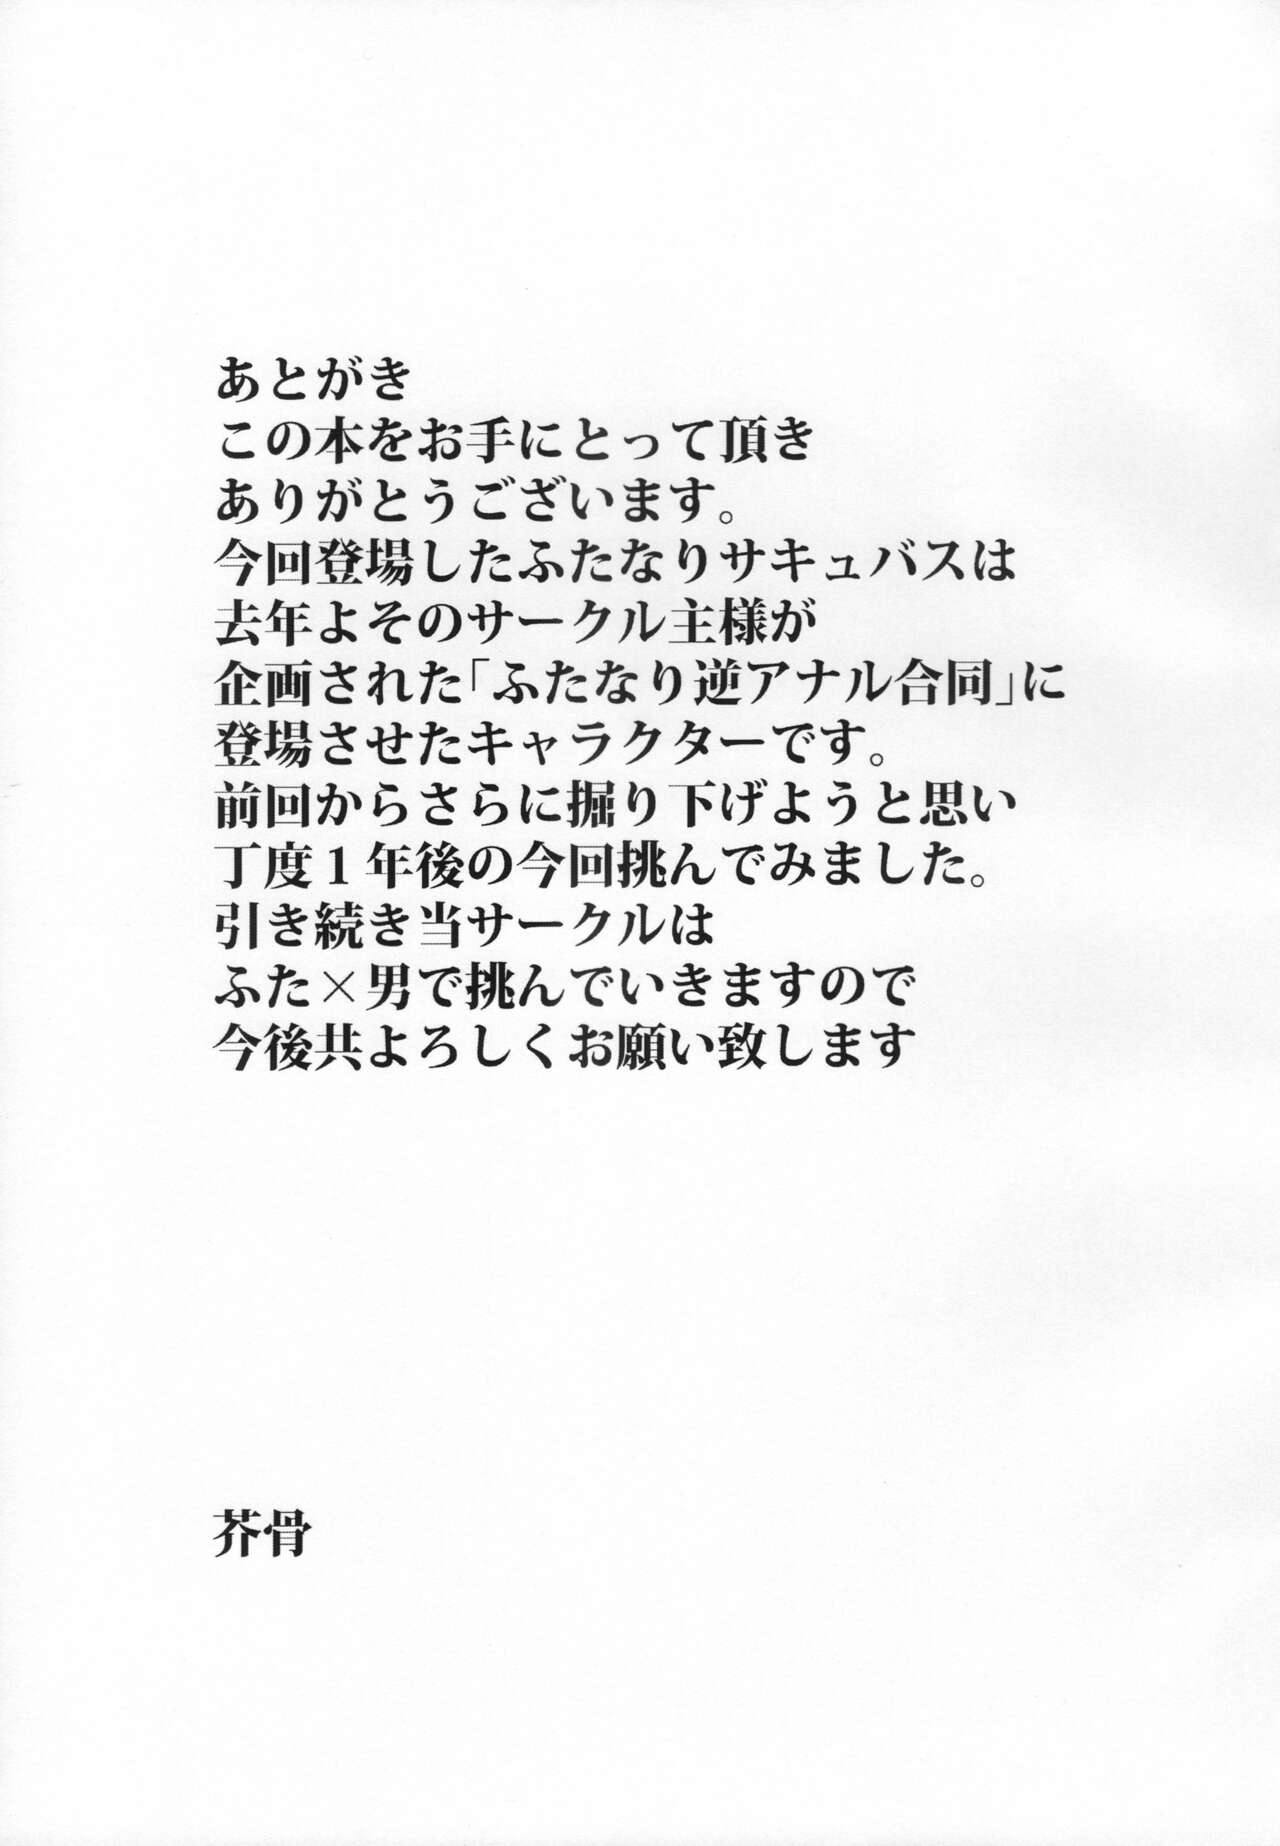 あとがき
この本をお手にとって頂き
ありがとうございます。
今回登場したふたなりサキュバスは
去年よそのサークル主様が
企画された｢ふたなり逆アナル合同｣に
登場させたキャラクターです。
前回からさらに掘り下げようと思い
丁度１年後の今回挑んでみました。
引き続き当サークルは
ふた×男で挑んでいきますので
今後共よろしくお願い致します
芥骨